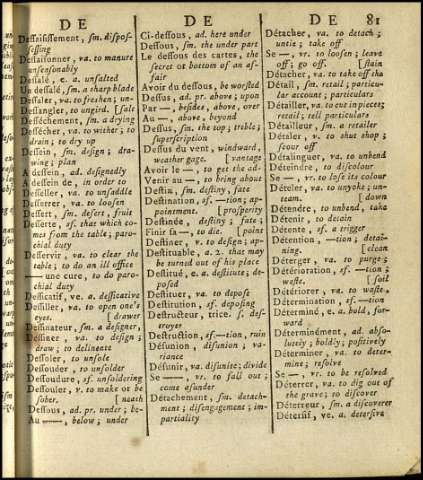 D E
D E
D E 81
Dessaisissement, sm. dispos-
sessing
Dessaisonner, va. to manure
unseasonably
Dessalé, e. a. unsalted
Un dessalé, sm. a sharp blade
Dessaler, va. to freshen; un-
Dessangler, to ungird. [salt
Desséchement, sm. a drying
Dessécher, va. to wither; to
drain; to dry up
Dessein, sm. design; dra-
wing; plan
A dessein, ad. designedly
A dessein de, in order to
Desseller, va. to unsaddle
Desserrer, va. to loosen
Dessert, sm. desert, fruit
Desserte, sf. that which co-
mes from the table; paro-
chial duty
Desservir, va. to clear the
table; to do an ill office
— une cure, to do paro-
chial duty
Dessicatif, ve. a. dessicative
Dessiller, va. to open one's
eyes. [drawer
Dessinateur, sm. a designer,
Dessiner, va. to design;
draw; to delineate
Dessoler, to unsole
Dessouder, to unsolder
Dessoudure, sf. unsoldering
Dessouler, v. to make or be
sober. [neath
Dessous, ad. pr. under; be-
Au —, below; under
Ci-dessous, ad. here under
Dessous, sm. the under part
Le dessous des cartes, the
secret or bottom of an as-
fair
Avoir du dessous, be worsted
Dessus, ad. pr. above; upon
Par —, besides, above, over
Au —, above, beyond
Dessus, sm. the top; treble;
superscription
Dessus du vent, windward,
weather gage. [vantage
Avoir le —, to get the ad-
Venir au —, to bring about
Destin, sm. destiny, fate
Destination, sf. —tion; ap-
pointment. [prosperity
Destinée, destiny; fate;
Finir sa —, to die. [point
Destiner, v. to design; ap-
Destituable, a. 2. that may
be turned out of his place
Destitué, e. a. destitute; de-
posed
Destituer, va. to depose
Destitution, sf. deposing
Destructeur, trice. s. des-
troyer
Destruction, sf. —tion, ruin
Désunion, disunion; va-
riance
Désunir, va. disunite; divide
Se —, vr. to fall out;
come asunder
Détachement, sm. detach-
ment; disengagement; im-
partiality
Détacher, va. to detach;
untie; take off
Se —, vr. to loosen; leave
off; go off. [stain
Détacher, va. to take off the
Détail, sm. retail; particu-
lar account; particulars
Détailler, va. to cut in pieces;
retail; tell particulars
Détailleur, sm. a retailer
Détaler, v. to shut shop;
scour off
Détalinguer, va. to unbend
Déteindre, to discolour
Se —, vr. to lose its colour
Dételer, va. to unyoke; un-
team. [down
Détendre, to unbend, take
Détenir, to detain
Détente, sf. a trigger
Détention, —tion; detai-
ning. [clean
Déterger, va. to purge;
Détérioration, sf. —tion;
waste. [soil
Détériorer, va. to waste,
Détermination, sf. —tion
Déterminé, e. a. bold, for-
ward
Déterminément, ad. abso-
lutely; boldly; positively
Déterminer, va. to deter-
mine; resolve
Se —, vr. to be resolved
Déterrer, va. to dig out of
the grave; to discover
Déterreur, sm. a discoverer
Détersif, ve. a. detersive